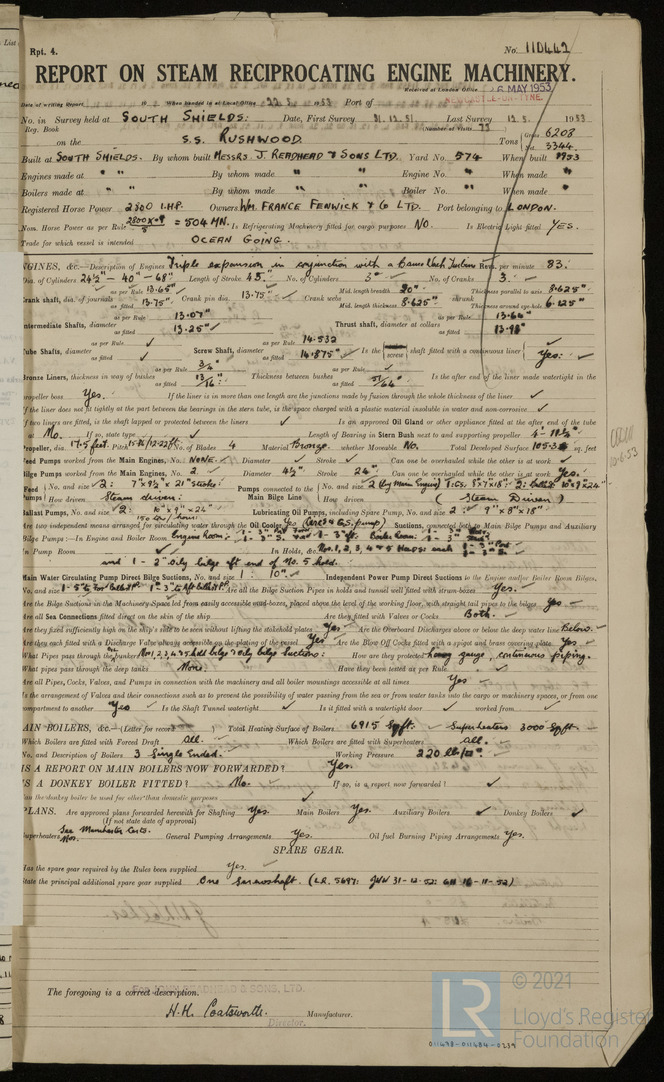 Rpt. 4.
No. 110442
REPORT ON STEAM RECIPROCATING ENGINE MACHINERY.
Received at London Office 6 MAY 1953
Date of writing Report 19 When handed in at Local Office 22.5. 1953 Port of NEWCASTLE-ON-TYNE
No. in Survey held at SOUTH SHIELDS. Date, First Survey 31.12.51. Last Survey 12.5. 1953
Reg. Book (Number of Visits 73
on the S.S. RUSHWOOD Tons Gross 6208
Net 3344
Built at SOUTH SHIELDS. By whom built MESSRS J. READHEAD & SONS LTD. Yard No. 574 When built 1953
Engines made at " " By whom made " " Engine No. " When made "
Boilers made at " " By whom made " " Boiler No. " When made "
Registered Horse Power 2800 I.HP. Owners WM. FRANCE FENWICK & Co LTD. Port belonging to LONDON.
Nom. Horse Power as per Rule = 504 MN. Is Refrigerating Machinery fitted for cargo purposes NO. Is Electric Light fitted YES.
Trade for which vessel is intended OCEAN GOING.
ENGINES, &c.—Description of Engines Triple expansion in conjunction with a Bauer Wach Turbine Revs. per minute 83.
Dia. of Cylinders 24½" – 40" – 68" Length of Stroke 45" No. of Cylinders 3 No. of Cranks 3
Crank shaft, dia. of journals as per Rule 13.65" as fitted 13.75" Crank pin dia. 13.75" Crank webs Mid. length breadth 20" Mid. length thickness 8.625" shrunk Thickness parallel to axis 8.625" Thickness around eye-hole 6.125"
Intermediate Shafts, diameter as per Rule 13.07" as fitted 13.25" Thrust shaft, diameter at collars as per Rule 13.66" as fitted 13.98"
Tube Shafts, diameter as per Rule as fitted Screw Shaft, diameter as per Rule 14.532 as fitted 14.875" Is the screw shaft fitted with a continuous liner Yes.
Bronze Liners, thickness in way of bushes as per Rule 3/4" as fitted 13/16" Thickness between bushes as fitted Is the after end of the liner made watertight in the
propeller boss Yes. If the liner is in more than one length are the junctions made by fusion through the whole thickness of the liner
If the liner does not fit tightly at the part between the bearings in the stern tube, is the space charged with a plastic material insoluble in water and non-corrosive
If two liners are fitted, is the shaft lapped or protected between the liners Is an approved Oil Gland or other appliance fitted at the after end of the tube
No. If so, state type Length of Bearing in Stern Bush next to and supporting propeller
Propeller, dia. 17.5 feet. Pitch No. of Blades 4 Material Bronze. whether Moveable No. Total Developed Surface sq. feet
Feed Pumps worked from the Main Engines, No. NONE Diameter Stroke Can one be overhauled while the other is at work
Bilge Pumps worked from the Main Engines, No. 2. Diameter 4½" Stroke 24" Can one be overhauled while the other is at work Yes.
Feed Pumps No. and size 2: 7" x 9½" x 21" stroke: Pumps connected to the Main Bilge Line No. and size 2 (by Main Engine)
How driven Steam driven: How driven (Steam Driven)
Ballast Pumps, No. and size 2: 10" x 9" x 24" Lubricating Oil Pumps, including Spare Pump, No. and size 2: 9" x 8" x 18"
Are two independent means arranged for circulating water through the Oil Cooler Yes Suctions, connected both to Main Bilge Pumps and Auxiliary
Bilge Pumps:—In Engine and Boiler Room Engine Room:
In Pump Room In Holds, &c. Nos. 1, 2, 3, 4 & 5 Holds: each
and 1 – 2" oily bilge aft end of No. 5 hold.
Main Water Circulating Pump Direct Bilge Suctions, No. and size 1: 10" Independent Power Pump Direct Suctions to the Engine and/or Boiler Room Bilges,
No. and size Are all the Bilge Suction Pipes in holds and tunnel well fitted with strum-boxes Yes.
Are the Bilge Suctions in the Machinery Space led from easily accessible mud-boxes, placed above the level of the working floor, with straight tail pipes to the bilges Yes
Are all Sea Connections fitted direct on the skin of the ship Are they fitted with Valves or Cocks Both.
Are they fixed sufficiently high on the ship's side to be seen without lifting the stokehold plates Yes Are the Overboard Discharges above or below the deep water line Below.
Are they each fitted with a Discharge Valve always accessible on the plating of the vessel Yes Are the Blow Off Cocks fitted with a spigot and brass covering plate Yes.
What Pipes pass through the bunkers How are they protected heavy gauge, continuous piping.
What pipes pass through the deep tanks None. Have they been tested as per Rule
Are all Pipes, Cocks, Valves, and Pumps in connection with the machinery and all boiler mountings accessible at all times Yes
Is the arrangement of Valves and their connections such as to prevent the possibility of water passing from the sea or from water tanks into the cargo or machinery spaces, or from one
compartment to another Yes Is the Shaft Tunnel watertight Is it fitted with a watertight door worked from
MAIN BOILERS, &c.—(Letter for record ) Total Heating Surface of Boilers 6915 Sqft. Superheaters 3000 Sqft.
Which Boilers are fitted with Forced Draft All. Which Boilers are fitted with Superheaters All.
No. and Description of Boilers 3 Single Ended. Working Pressure 220 lb/□".
IS A REPORT ON MAIN BOILERS NOW FORWARDED? Yes.
IS A DONKEY BOILER FITTED? No. If so, is a report now forwarded?
Can the donkey boiler be used for other than domestic purposes
PLANS. Are approved plans forwarded herewith for Shafting Yes. Main Boilers Yes. Auxiliary Boilers Donkey Boilers
(If not state date of approval)
Superheaters See Manchester Certs. General Pumping Arrangements Yes. Oil fuel Burning Piping Arrangements Yes.
SPARE GEAR.
Has the spare gear required by the Rules been supplied Yes.
State the principal additional spare gear supplied One Screwshaft. (LR. 5697: JWN 31-12-52: GH 16-11-52)
The foregoing is a correct description.
FOR JOHN READHEAD & SONS, LTD.
H. H. Coatsworth. Manufacturer.
Director.
LR
© 2021
Lloyd's Register
Foundation
011678-011684-0239